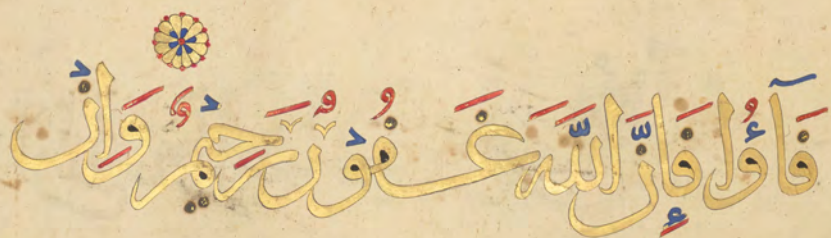 فَآءُو فَإِنَّ اللَّهَ غَفُورٌ رَحِيمٌ وَإِنْ